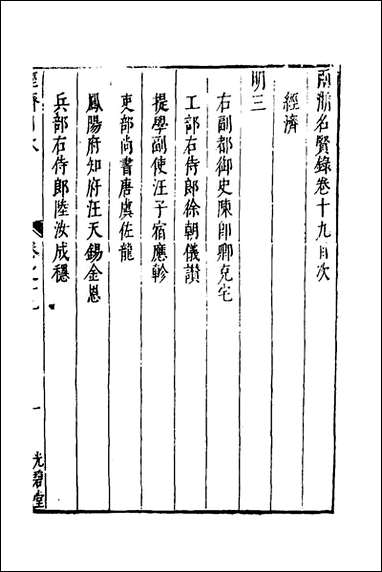 兩浙名賢錄卷十九目次
經濟
明三
右副都御史陳即卿克宅
工部右侍郎徐朝儀讚
提學副使汪子宿應軫
吏部尚書唐虞佐龍
鳳陽府知府汪天錫金恩
兵部右侍郎陸汝成穩
經濟目次
卷之十九
一
光碧堂